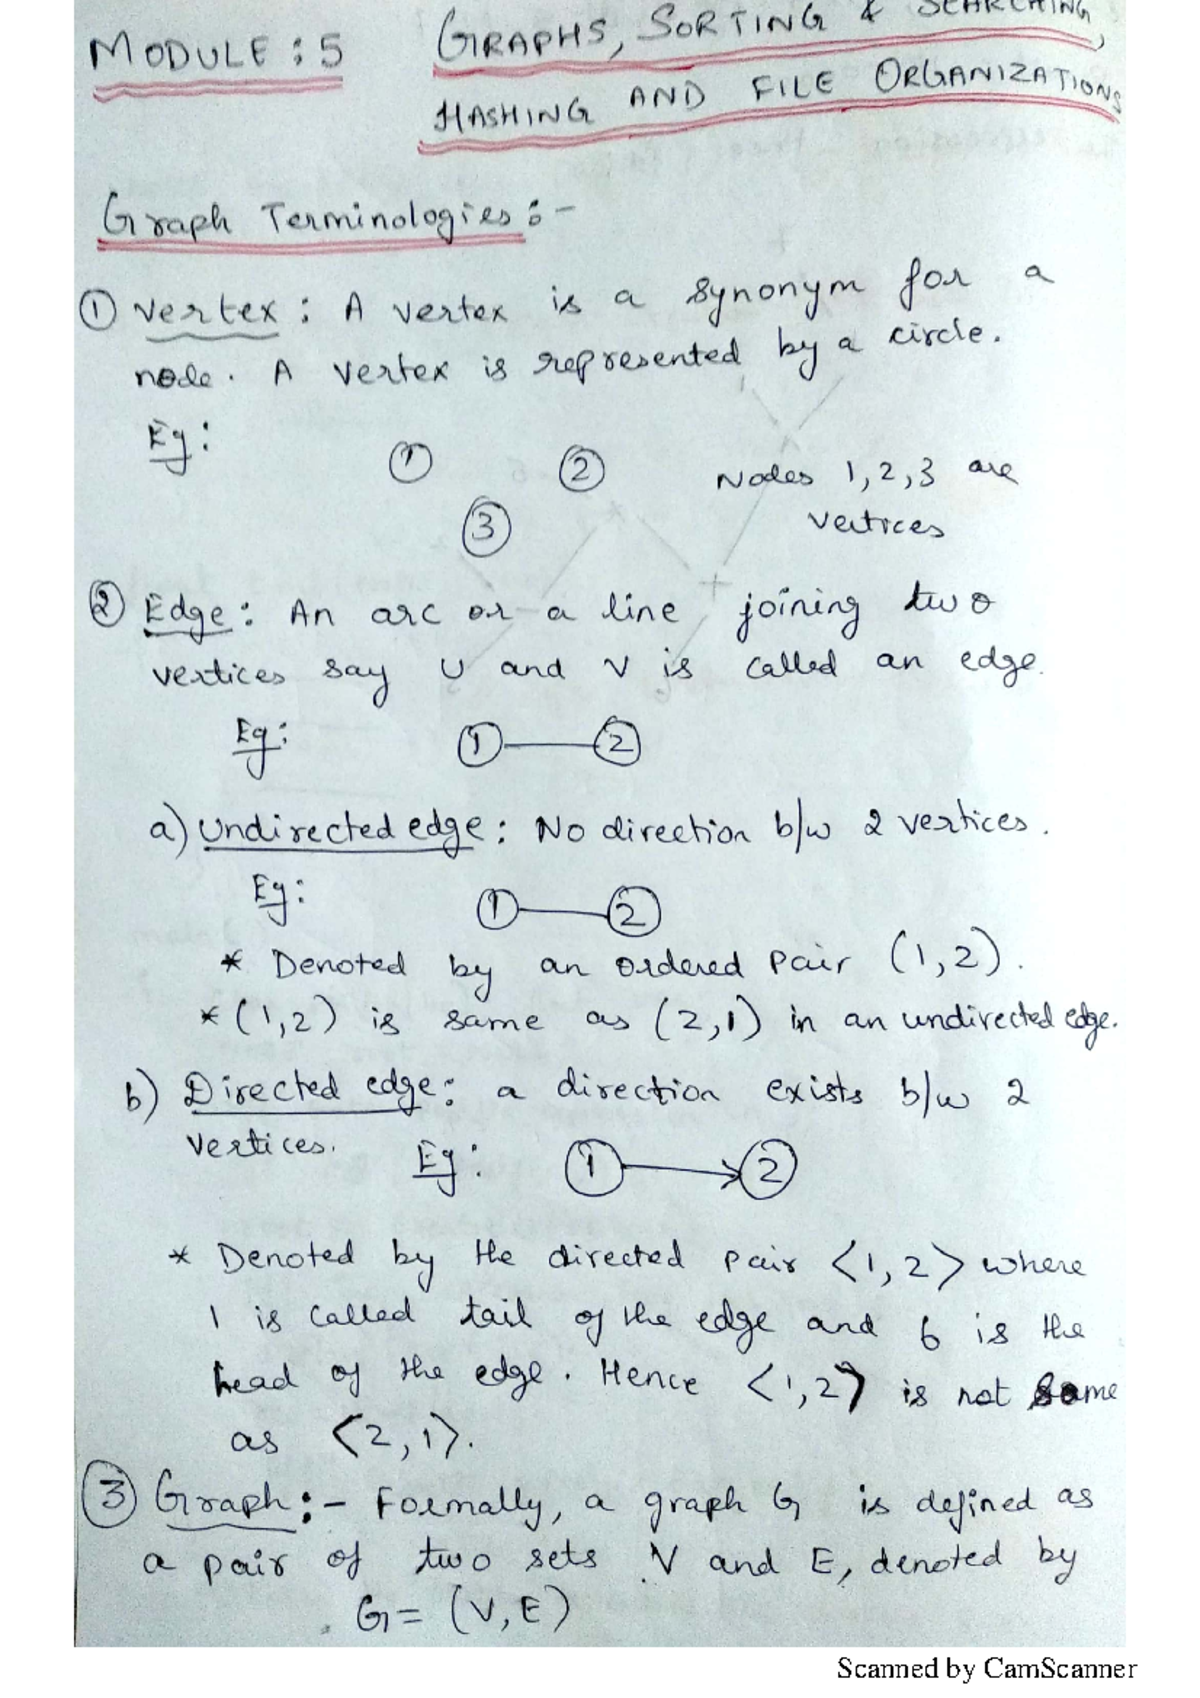 MODULE : 5 GRAPHS, SORTING & SEARCHING,
HASHING AND FILE ORGANIZATIONS
Graph Terminologies :-
① Vertex : A vertex is a synonym for a
node. A vertex is represented by a circle.
Eg:
① ② Nodes 1,2,3 are
③ vertices
② Edge : An arc or a line joining two
vertices say U and V is called an edge.
Eg: ① ②
a) Undirected edge : No direction b/w 2 vertices.
Eg: ① ②
* Denoted by an ordered pair (1,2).
* (1,2) is same as (2,1) in an undirected edge.
b) Directed edge : a direction exists b/w 2
vertices. Eg: ① ②
* Denoted by the directed pair <1,2> where
1 is called tail of the edge and 6 is the
head of the edge. Hence <1,2> is not same
as <2,1>.
③ Graph :- Formally, a graph G is defined as
a pair of two sets V and E, denoted by
G = (V,E)
Scanned by CamScanner